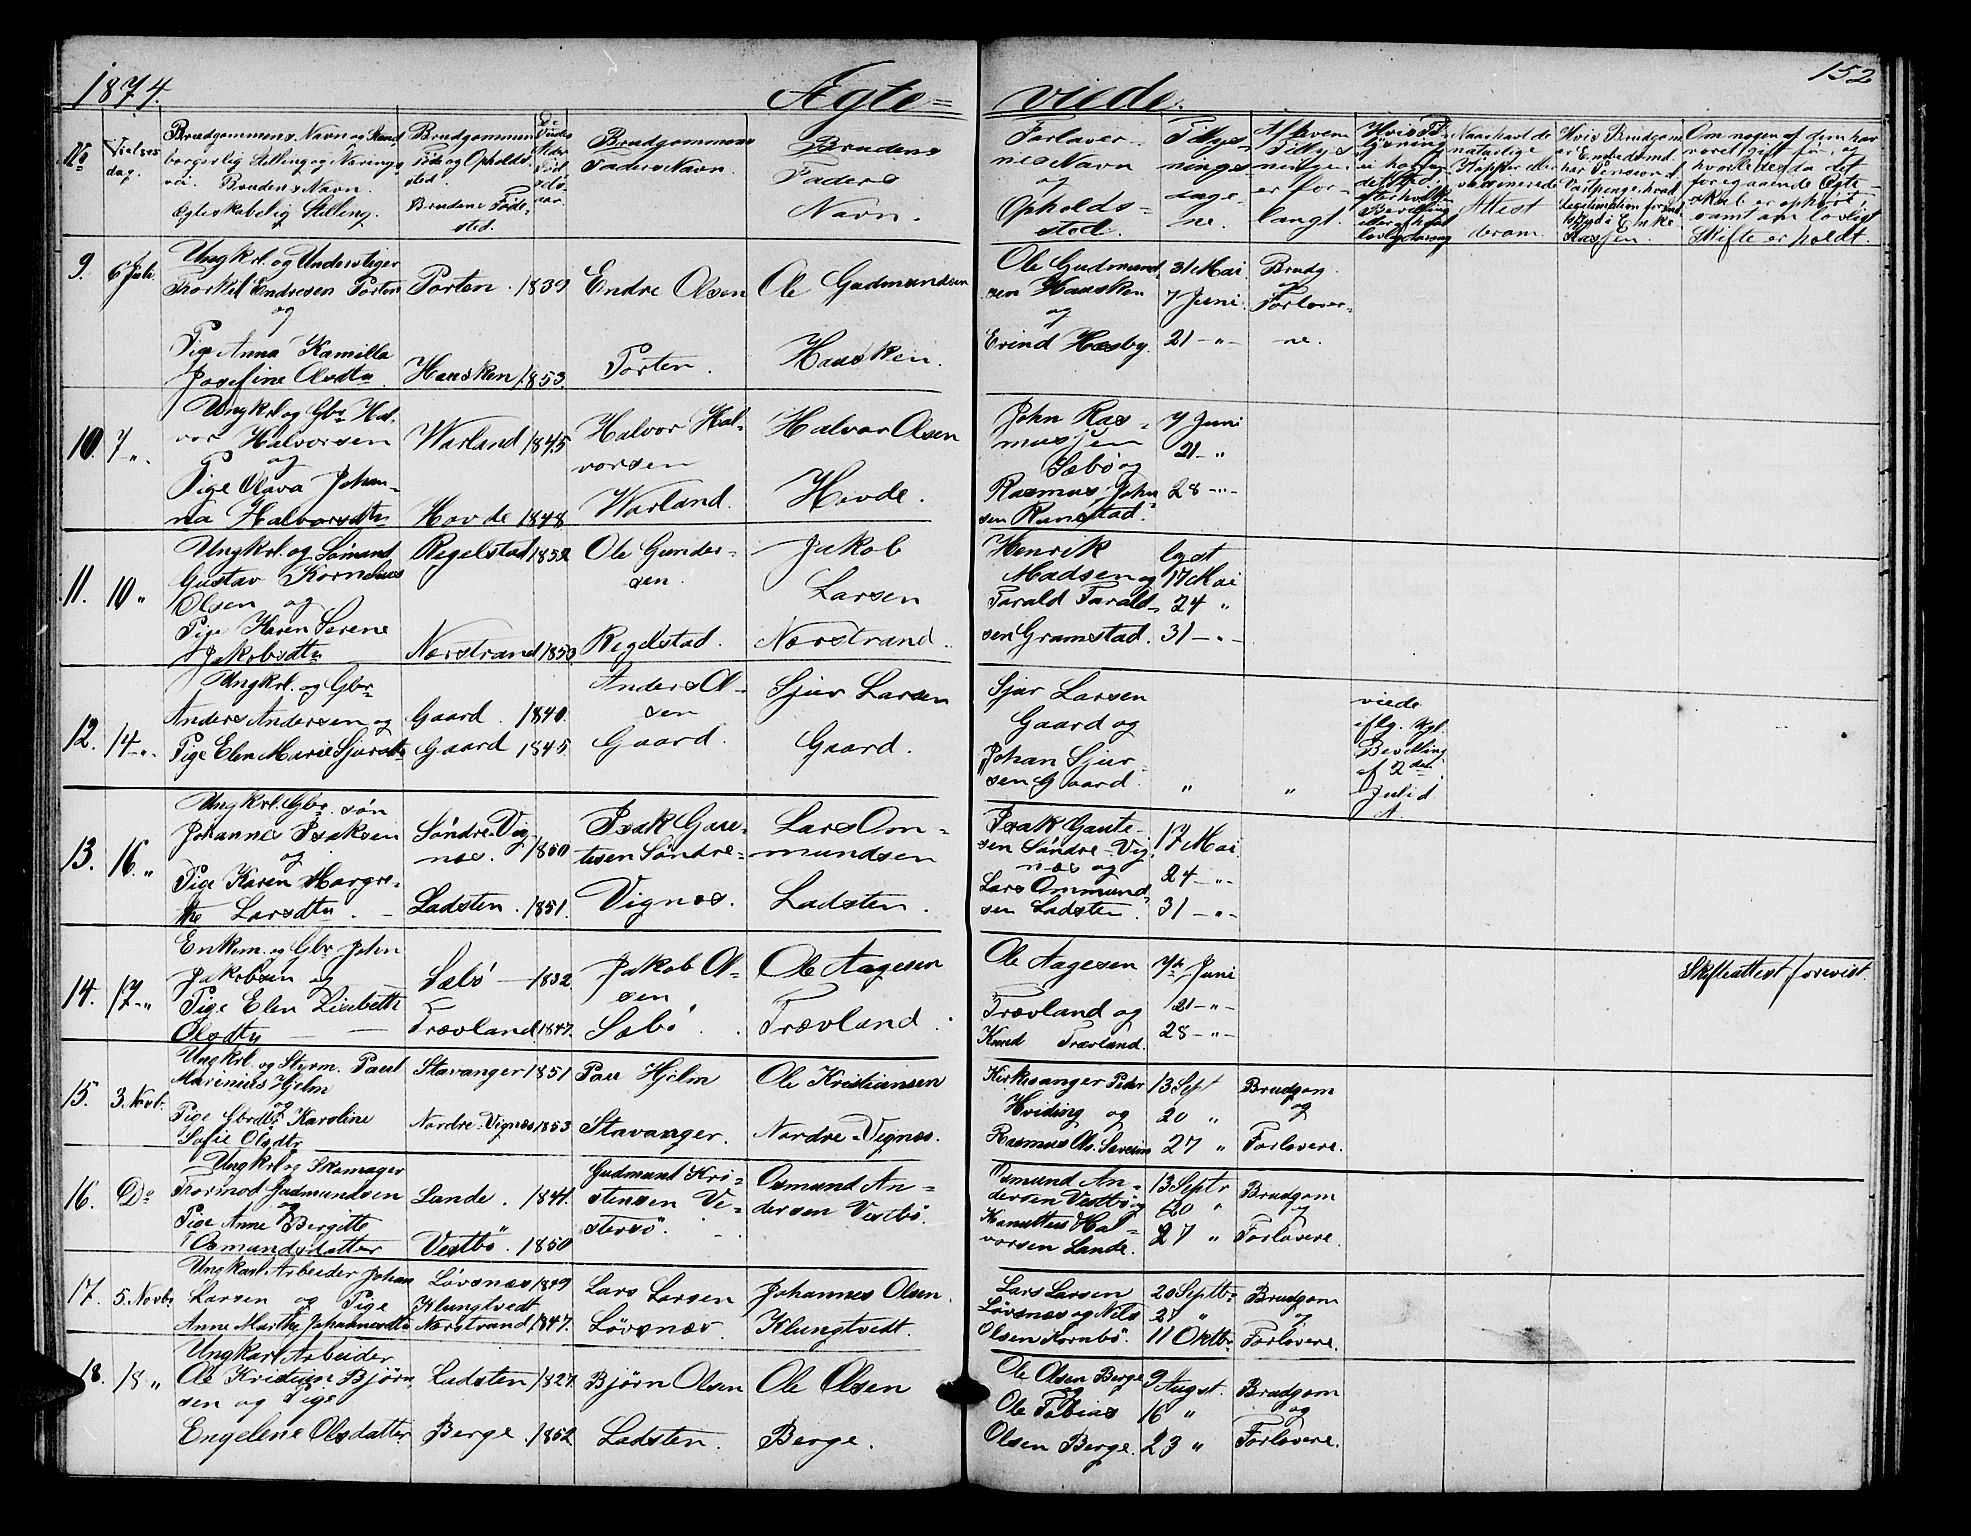 1874.
Ægte=
viede.
152
No
Vielses
dag.
Brudgommens Navn og Stand
borgerlig Stilling og Nærings
vei. Brudens Navn.
Ægteskabelig Stilling.
Brudgommens
og Opholds
sted.
Brudens Føde-
sted.
Brudgommens
Faders Navn.
Brudens
Faders
Navn.
Forlover-
nes Navn
og
Opholds-
sted.
Tillys-
nings-
dage-
ne.
Af hvem
Tillys-
ningen
er for-
langt.
Naar havt de
naturlige
Kopper
Attest
derom.
Hvis Brudgom.
er Embedsmd.
Om nogen af dem har
været gift før, og
hvorledes da det
foregaaende Ægte-
skab er ophørt,
samt om lovligt
Skifte er holdt.
9.
6 Juli
Ungkrl. og Understiger
Torkel Endresen Porten
og
Pige Anna Kamilla
Josefine Olsdtr
Porten. 1839
Hausken 1853.
Endre Olsen
Porten.
Ole Gudmundsen
Hausken.
Ole Gudmund
sen Hausken
og
Erind Hæsby.
31 Mai
7 Juni
21 - " -
Brudg.
og
Forlover-
ne.
10.
7 ".
Ungkrl. og Gbr Hal-
vor Halvorsen
og
Pige Olava Johan-
na Halvorsdtr
Warland 1845
Hovde 1848
Halvor Hal-
vorsen
Warland.
Halvor Olsen
Hovde.
John Ras-
musjen
Sæbø og
Rasmus John
sen Ranestad.
7 Juni
21 - "
28 - " -
11.
10 "
Ungkrl. og Sømand
Gustav Kornelius
Olsen og
Pige Karen Serene
Jakobsdtr
Regelstad 1852
Nærstrand 1850
Ole Gunder-
sen.
Regelstad.
Jakob
Larsen
Nærstrand.
Henrik
Madsen og
Tarald Tarald-
sen Gramstad.
lyst
17 Mai
24 "
31 - " -
12.
14 - ".
Ungkrl. og Gbr
Anders Andersen og
Pige Elen Marie Sjursdtr
Gaard. 1840.
Gaard 1845
Anders Ol-
sen
Gaard.
Sjur Larsen
Gaard.
Sjur Larsen
Gaard og
Johan Sjur-
sen Gaard.
"
"
viede
iflg. Kgl.
Bevilling
af 2den
Juli d.
A.
13.
16. "
Ungkrl. Gbr. søn
Johannes Isaksen
og
Pige Karen Margre-
the Larsdtr. -
Søndre-Vig-
næs. 1850
Ladsten. 1851.
Isak Gau-
tesen Søndre-
Vignæs.
Lars Om-
mundsen
Ladsten.
Isak Gaute-
sen Søndre-Vig
næs og
Lars Ommund
sen Ladsten.
17 Mai.
24 - " -
31 - " -
14.
17 - "
Enkem. og Gbr John
Jakobsen og
Pige Elen Lisebeth
Olsdtr
Sæbø - 1832.
Trævland 1847.
Jakob Ol-
sen
Sæbø.
Ole Aagesen
Trævland.
Ole Aagesen
Trævland og
Knud Trævland.
7de Juni
21 - " -
28 - " -
Skifteattest forevist.
15.
3. Novb.
Ungkrl. og Styrm. Paul
Marinius Hjelm
og
Pige Gbrdtr Karoline
Sofie Olsdtr
Stavanger 1851
Nordre-Vignæs 1853
Paul Hjelm
Stavanger.
Ole Kristiansen
Nordre-Vignæs.
Kirkesanger Peder
Hviding og
Rasmus Ol. Severin
13 Sept
20 "
27 "
Brudgom
og
Forlovere.
16.
Do
Ungkrl og Skomager
Thormod Gudmundsen
og
Pige Anne Bergitte
Osmundsdatter
Lande. 1841.
Vestbø. 1850
Gudmund Kri-
stensen Ve-
stersø.
Osmund An-
dersen Vestbø.
Osmund An-
dersen Vestbø og
Knuttus Hal-
vorsen Lande.
13 Septr
20 "
27 "
Brudgom
og
Forlovere.
17.
5. Novbr
Ungkarl Arbeider Johan
Larsen og Pige
Anne Marthe Johannesdtr
Løvsnæs 1849
Klungtvedt
Nærstrand 1847.
Lars Larsen
Løvsnæs.
Johannes Olsen.
Klungtvedt.
Lars Larsen
Løvsnæs og Nils
Olsen Kornbø.
20 Septbr
27 "
11 Oktbr
Brudgom
og
Forlovere.
18.
18 "
Ungkarl Arbeider
Ole Kristian Bjørn
sen og Pige
Engelene Olsdatter
Ladsten 1827.
Berge. 1852
Bjørn Olsen
Ladsten.
Ole Olsen
Berge.
Ole Olsen Berge
og
Ole Tobias
Olsen Berge.
9 August.
16 "
23 "
Brudgom
og
Forlovere.